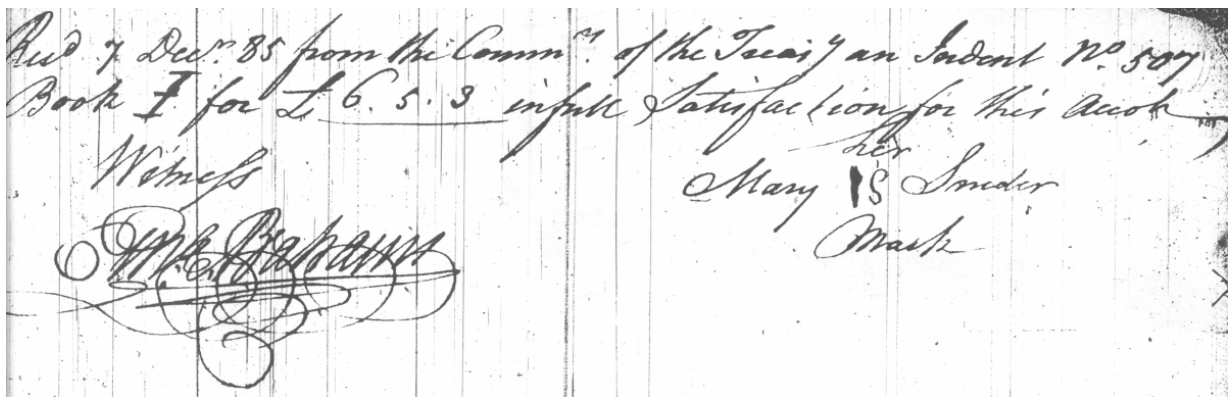 Recd 7 Decr. 85 from the Commrs. of the Treasy an Indent No. 507
Book I for £ 6. 5. 3 in full Satisfaction for this Accot
her
Witness
Mary IS Snider
Mark